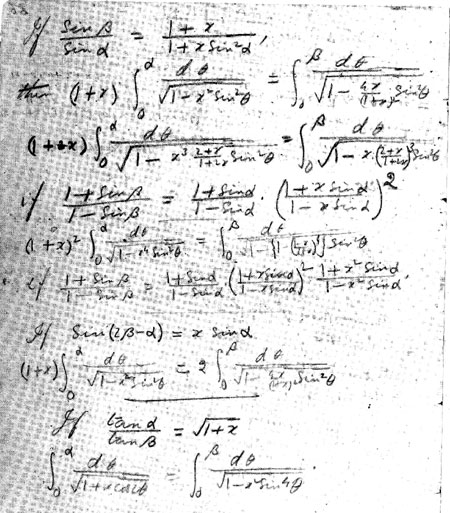 If Sinβ/Sinα = (1+x)/(1+x Sin²α),
then (1+x) ∫₀^α dθ/√(1−x² Sin²θ) = ∫₀^β dθ/√(1 − 4x/(1+x)² Sin²θ)
(1+2x) ∫₀^α dθ/√(1 − x³ (2+x)/(1+2x) Sin²θ) = ∫₀^β dθ/√(1 − x·((2+x)/(1+2x))³ Sin²θ)
if (1+Sinβ)/(1−Sinβ) = (1+Sinα)/(1−Sinα) · ((1+x Sinα)/(1−x Sinα))²
(1+x)² ∫₀^α dθ/√(1−x⁴ Sin²θ) = ∫₀^β dθ/√(1−{1− }Sin²θ)
if (1+Sinβ)/(1−Sinβ) = (1+Sinα)/(1−Sinα) ((1+x Sinα)/(1−x Sinα))² (1+x² Sinα)/(1−x² Sinα),
If Sin(2β−α) = x Sinα
(1+x) ∫₀^α dθ/√(1−x² Sin²θ) = 2 ∫₀^β dθ/√(1 − 4x/(1+x)² Sin²θ)
If tanα/tanβ = √(1+x)
∫₀^α dθ/√(1+x cos2θ) = ∫₀^β dθ/√(1−x² Sin⁴θ).